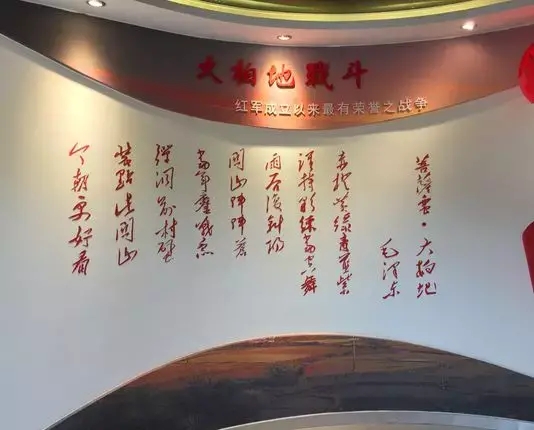 大柏地戰斗
红军成立以来最有荣誉之战争
菩萨蛮·大柏地
毛泽东
赤橙黄绿青蓝紫
谁持彩练当空舞
雨后复斜阳
关山阵阵苍
当年鏖战急
弹洞前村壁
装点此关山
今朝更好看